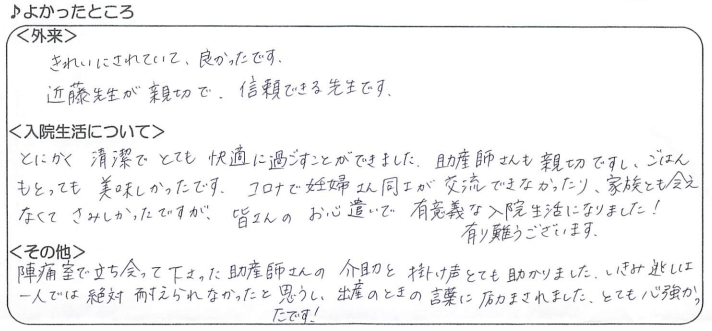 ♪よかったところ
＜外来＞
きれいにされていて、良かったです。
近藤先生が親切で、信頼できる先生です。
＜入院生活について＞
とにかく清潔でとても快適に過ごすことができました。助産師さんも親切ですし、ごはん
もとっても美味しかったです。コロナで妊婦さん同士が交流できなかったり、家族とも会え
なくてさみしかったですが、皆さんのお心遣いで有意義な入院生活になりました！
有り難うございます。
＜その他＞
陣痛室で立ち会って下さった助産師さんの介助と掛け声とても助かりました。いきみ逃しは
一人では絶対耐えられなかったと思うし、出産のときの言葉に励まされました。とても心強かっ
たです！